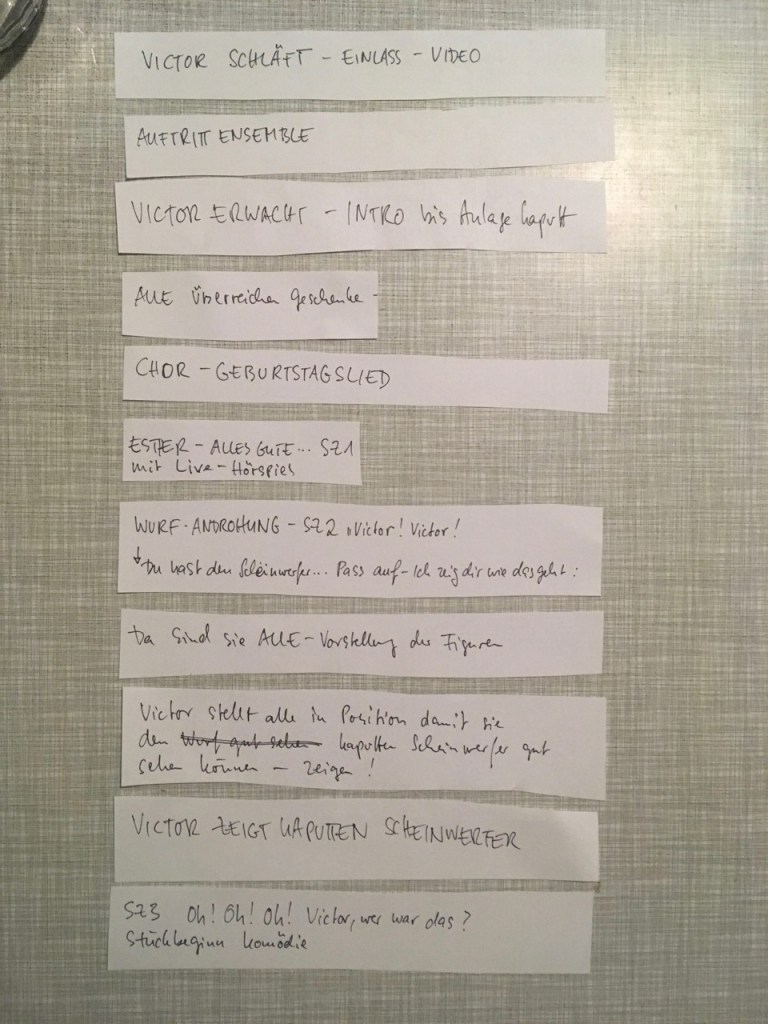 VICTOR SCHLÄFT – EINLASS – VIDEO
AUFTRITT ENSEMBLE
VICTOR ERWACHT – INTRO bis Anlage kaputt
ALLE überreichen Geschenke –
CHOR – GEBURTSTAGSLIED
ESTHER – ALLES GUTE... SZ1
mit Live-Hörspiel
WURF-ANDROHUNG – SZ2 „Victor! Victor!
↓ Du hast den Scheinwerfer... Pass auf – Ich zeig dir wie das geht:
Da sind sie ALLE – Vorstellung der Figuren
Victor stellt alle in Position damit sie
den Wurf gut sehen kaputten Scheinwerfer gut
sehen können – zeigen!
VICTOR ZEIGT KAPUTTEN SCHEINWERFER
SZ3 Oh! Oh! Oh! Victor, wer war das?
Stückbeginn Komödie